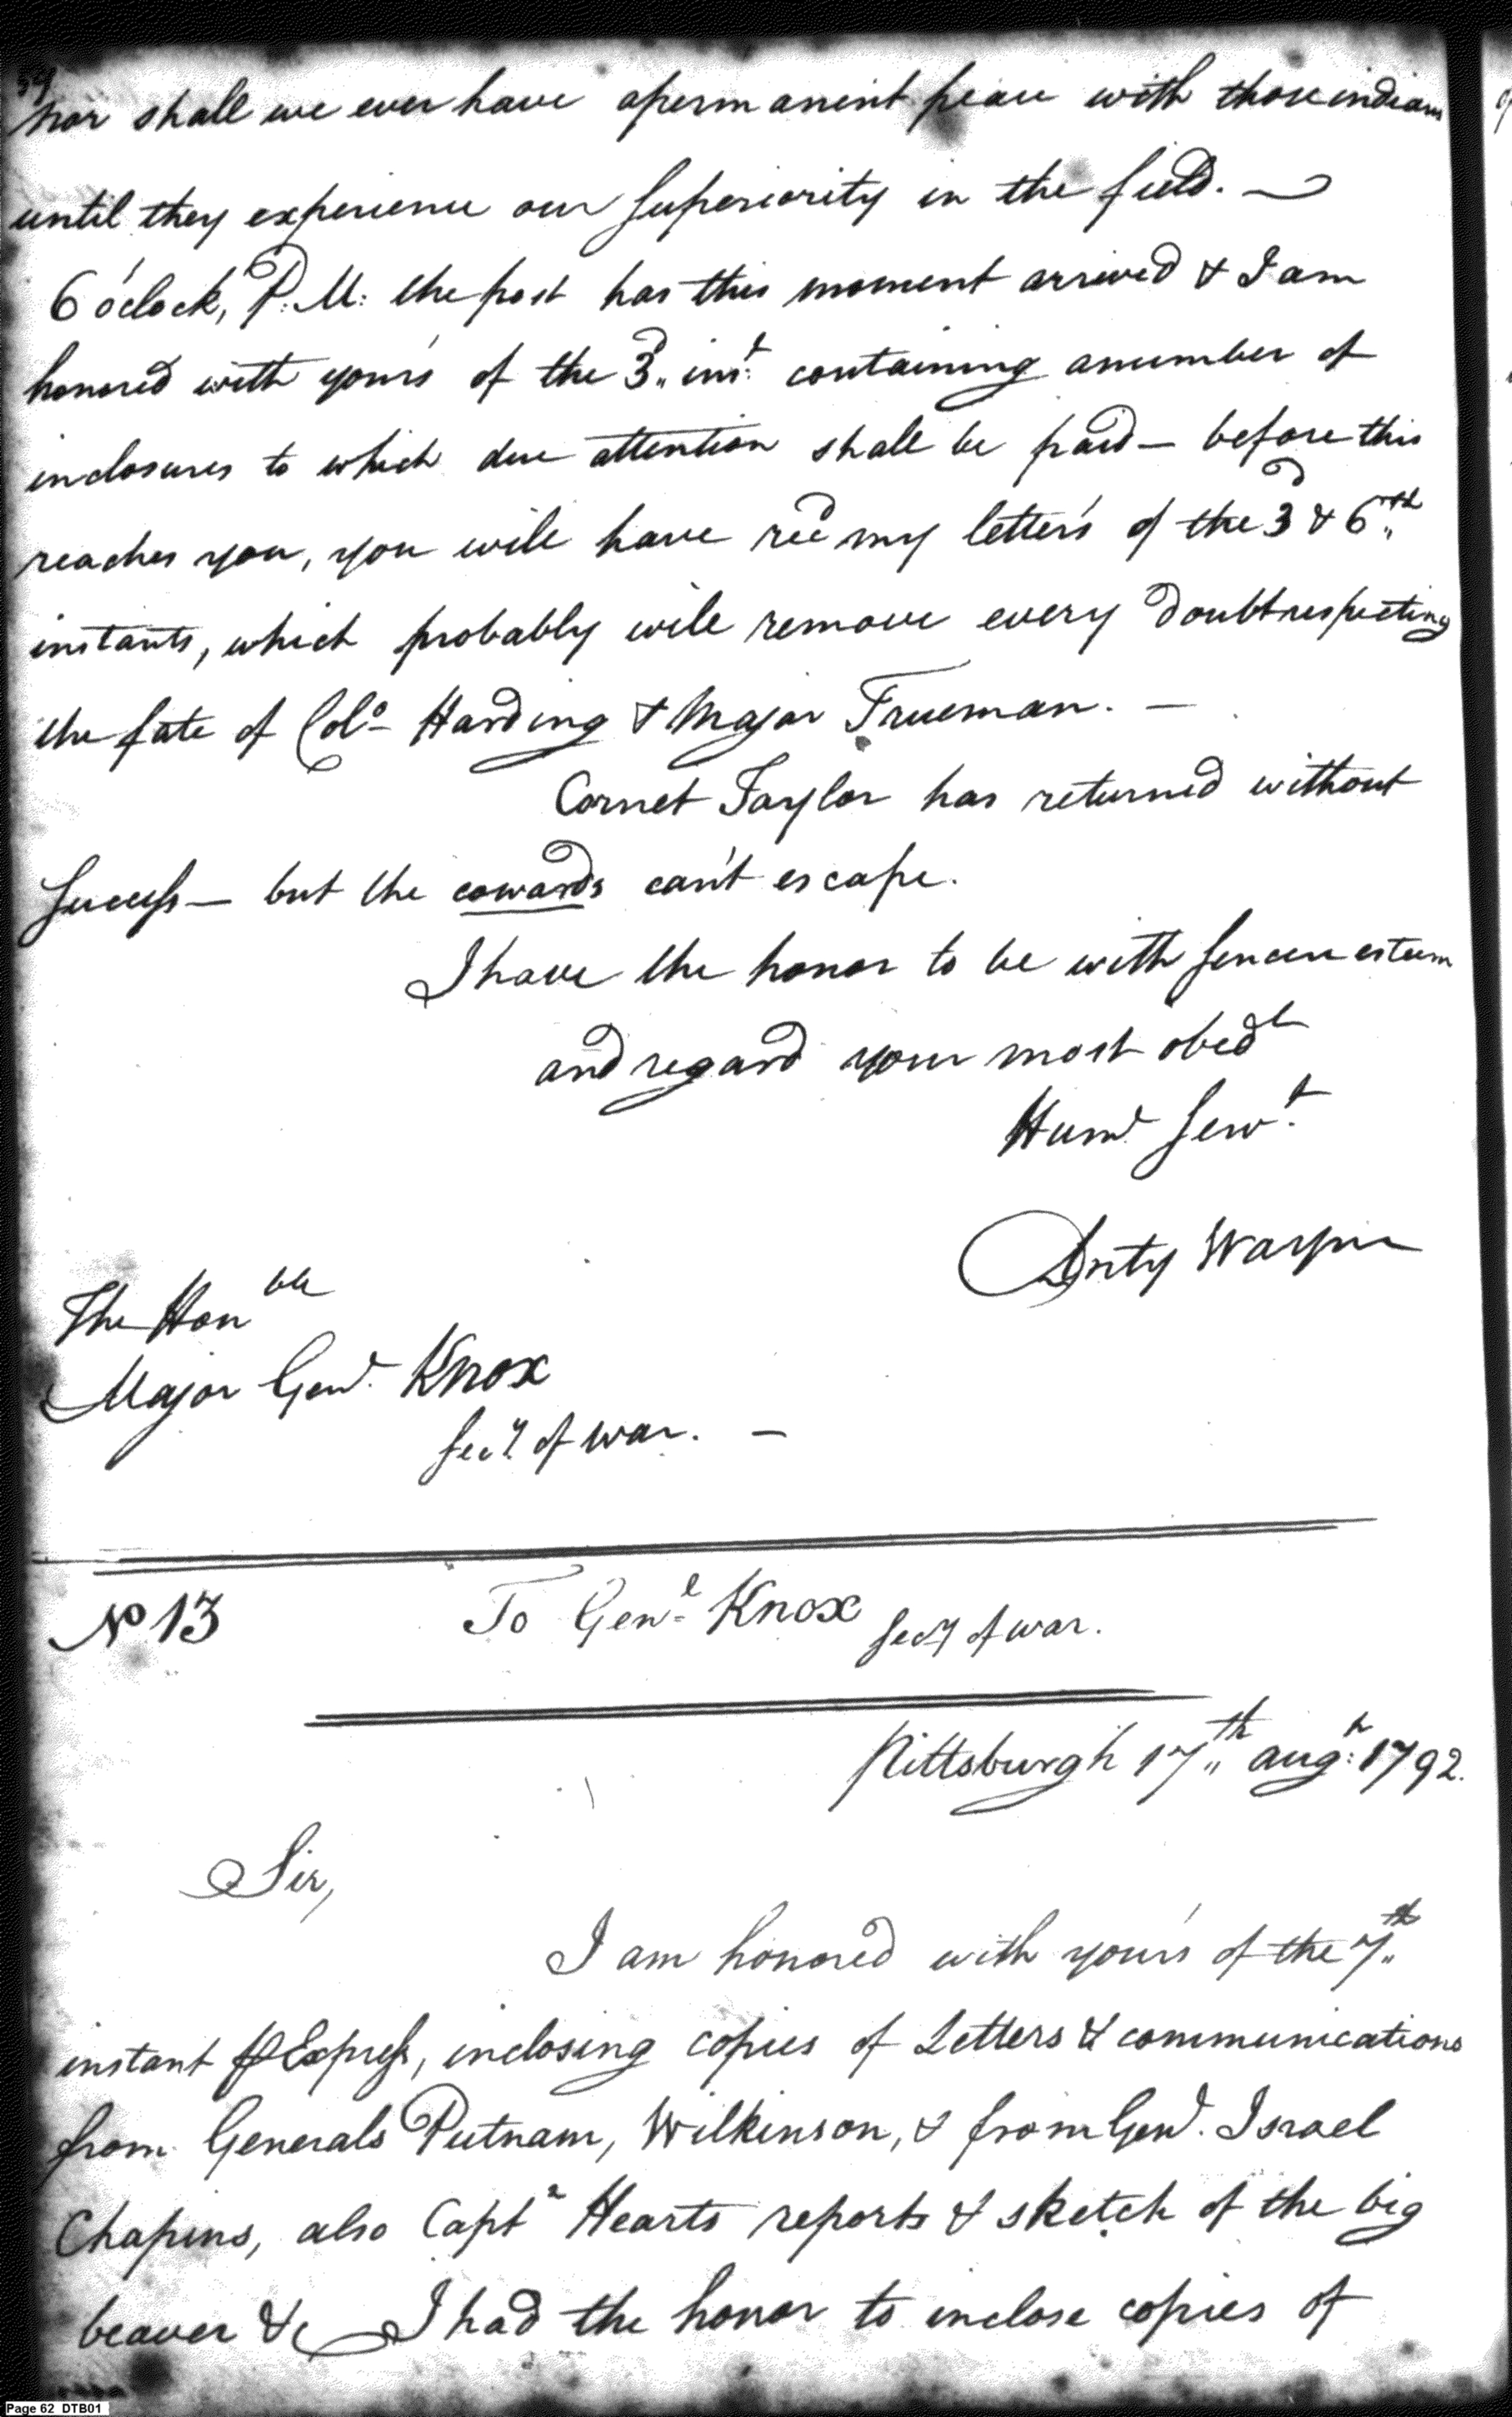 59
nor shall we ever have a permanent peace with those indians
until they experience our Superiority in the field. —
6 o'clock, P. M: the post has this moment arrived & I am
honored with your's of the 3d. inst: containing a number of
inclosures to which due attention shall be paid — before this
reaches you, you will have recd my letter's of the 3d & 6th
instants, which probably will remove every doubt respecting
the fate of Colo Harding & Major Trueman. —
Cornet Taylor has returned without
Success — but the cowards can't escape.
I have the honor to be with Sincere esteem
and regard your most obedt
Huml Servt
Anty Wayne
The Honble
Major Genl. Knox
Secy of War. —
No 13 To Genl Knox Secy of War.
Pittsburgh 17th augt: 1792.
Sir,
I am honored with your's of the 7th
instant ⅌ Express, inclosing copies of Letters & communications
from Generals Putnam, Wilkinson, & from Genl. Israel
Chapins, also Captn Hearts reports & sketch of the big
beaver &c I had the honor to inclose copies of
Page 62 DTB01